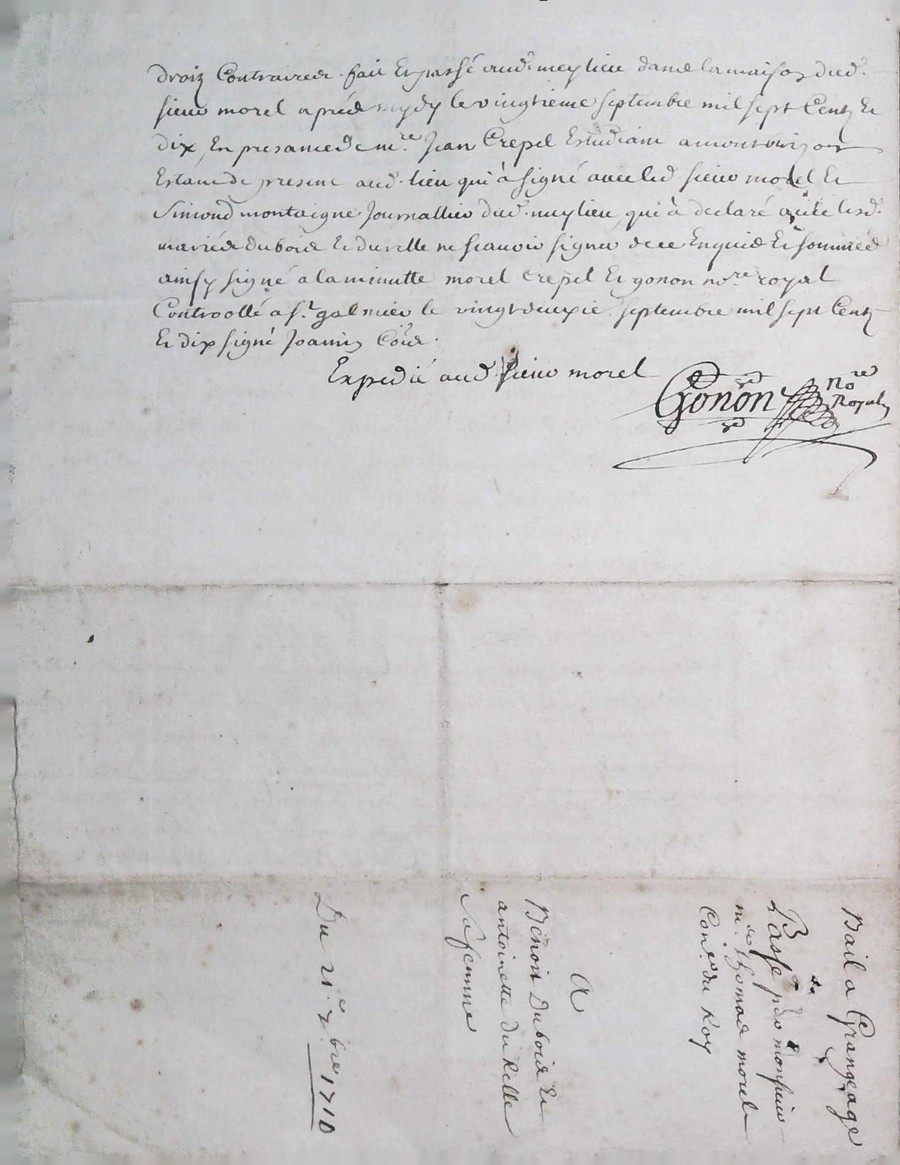 droiz Contraires. fait Et passé aud. meylieu dans la maison dud.
sieur morel aprés mydy le vingtieme septembre mil sept Centz Et
dix, En presance de m.re Jean Crepel Estudiant a montbrizon
Estant de present aud. lieu qui à signé avec led sieur morel Et
Simond montaigne Journallier dud. meylieu qui à declaré avec lesd.
mariés dubois Et durelle ne scavoir signer de ce Enquis Et sommés
ainsy signé a la minutte morel Crepel Et gonon no.re royal
Controollé a s.t galmier le vingt deuxie. septembre mil sept Centz
Et dix signé Joannin
Expedié aud. sieur morel
Gonon No.re Royal
Bail a Grangeage
Passé par monsieur
m.re thomas morel
Con.er du Roy
A
Benoit Dubois Et
antoinette du Relle
sa femme
Du 21.e 7.bre 1710